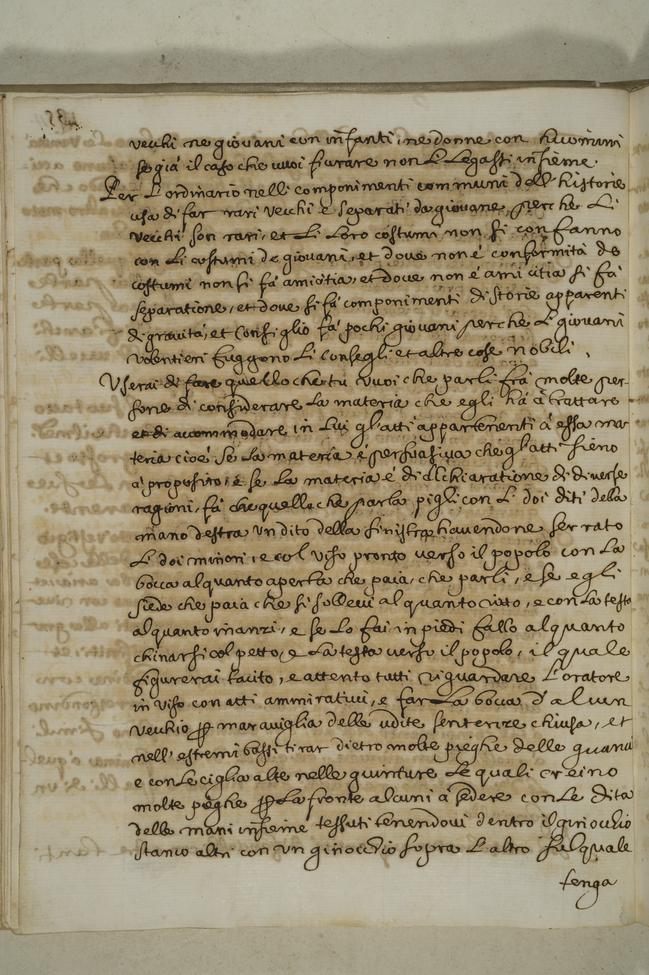 vecchi ne giovani con infanti, ne donne con huomini
se già il caso che vuoi figurare non li legassi insieme.
Per l'ordinario nelli componimenti communi dell'historie
usa di far rari vecchi e separati da giovane, perche li
vecchi son rari, et li loro costumi non si confanno
con li costumi de giovani, et dove non è conformità de
costumi non si fà amicitia, et dove non è amicitia si fà
separatione, et dove si fà componimenti di storie apparenti
di gravità, et consiglio fà pochi giovani perche li giovani
volentieri fuggono li consegli et altre cose nobili.
Userai di fare quello che tu vuoi che parli frà molte per-
sone di considerare la materia che egli hà à trattare
et di accommodare in lui gl'atti appartenenti à essa ma-
teria cioè, se la materia è persuasiva che gl'atti sieno
à proposito, e se la materia è di dichiaratione di diverse
ragioni, fà che quello che parla pigli con li doi diti della
mano destra un dito della sinistra havendone serrato
li doi minori, e col viso pronto verso il popolo con la
bocca alquanto aperta che paia, che parli, e se egli
siede che paia che si sollevi alquanto ritto, e con la testa
alquanto inanzi, e se lo fai in piedi fallo alquanto
chinarsi col petto, e la testa verso il popolo, il quale
figurerai tacito, e attento tutti riguardare l'oratore
in viso con atti ammirativi, e far la bocca d'alcun
vecchio per maraviglia delle udite sententie chiusa, et
nell'estremi bassi tirar dietro molte pieghe delle guancie
e con le ciglia alte nelle giunture le quali creino
molte pieghe per la fronte alcuni a sedere con le dita
delle mani insieme tessuti tenendovi dentro il ginocchio
stanco altri con un ginocchio sopra l'altro sul quale
tenga